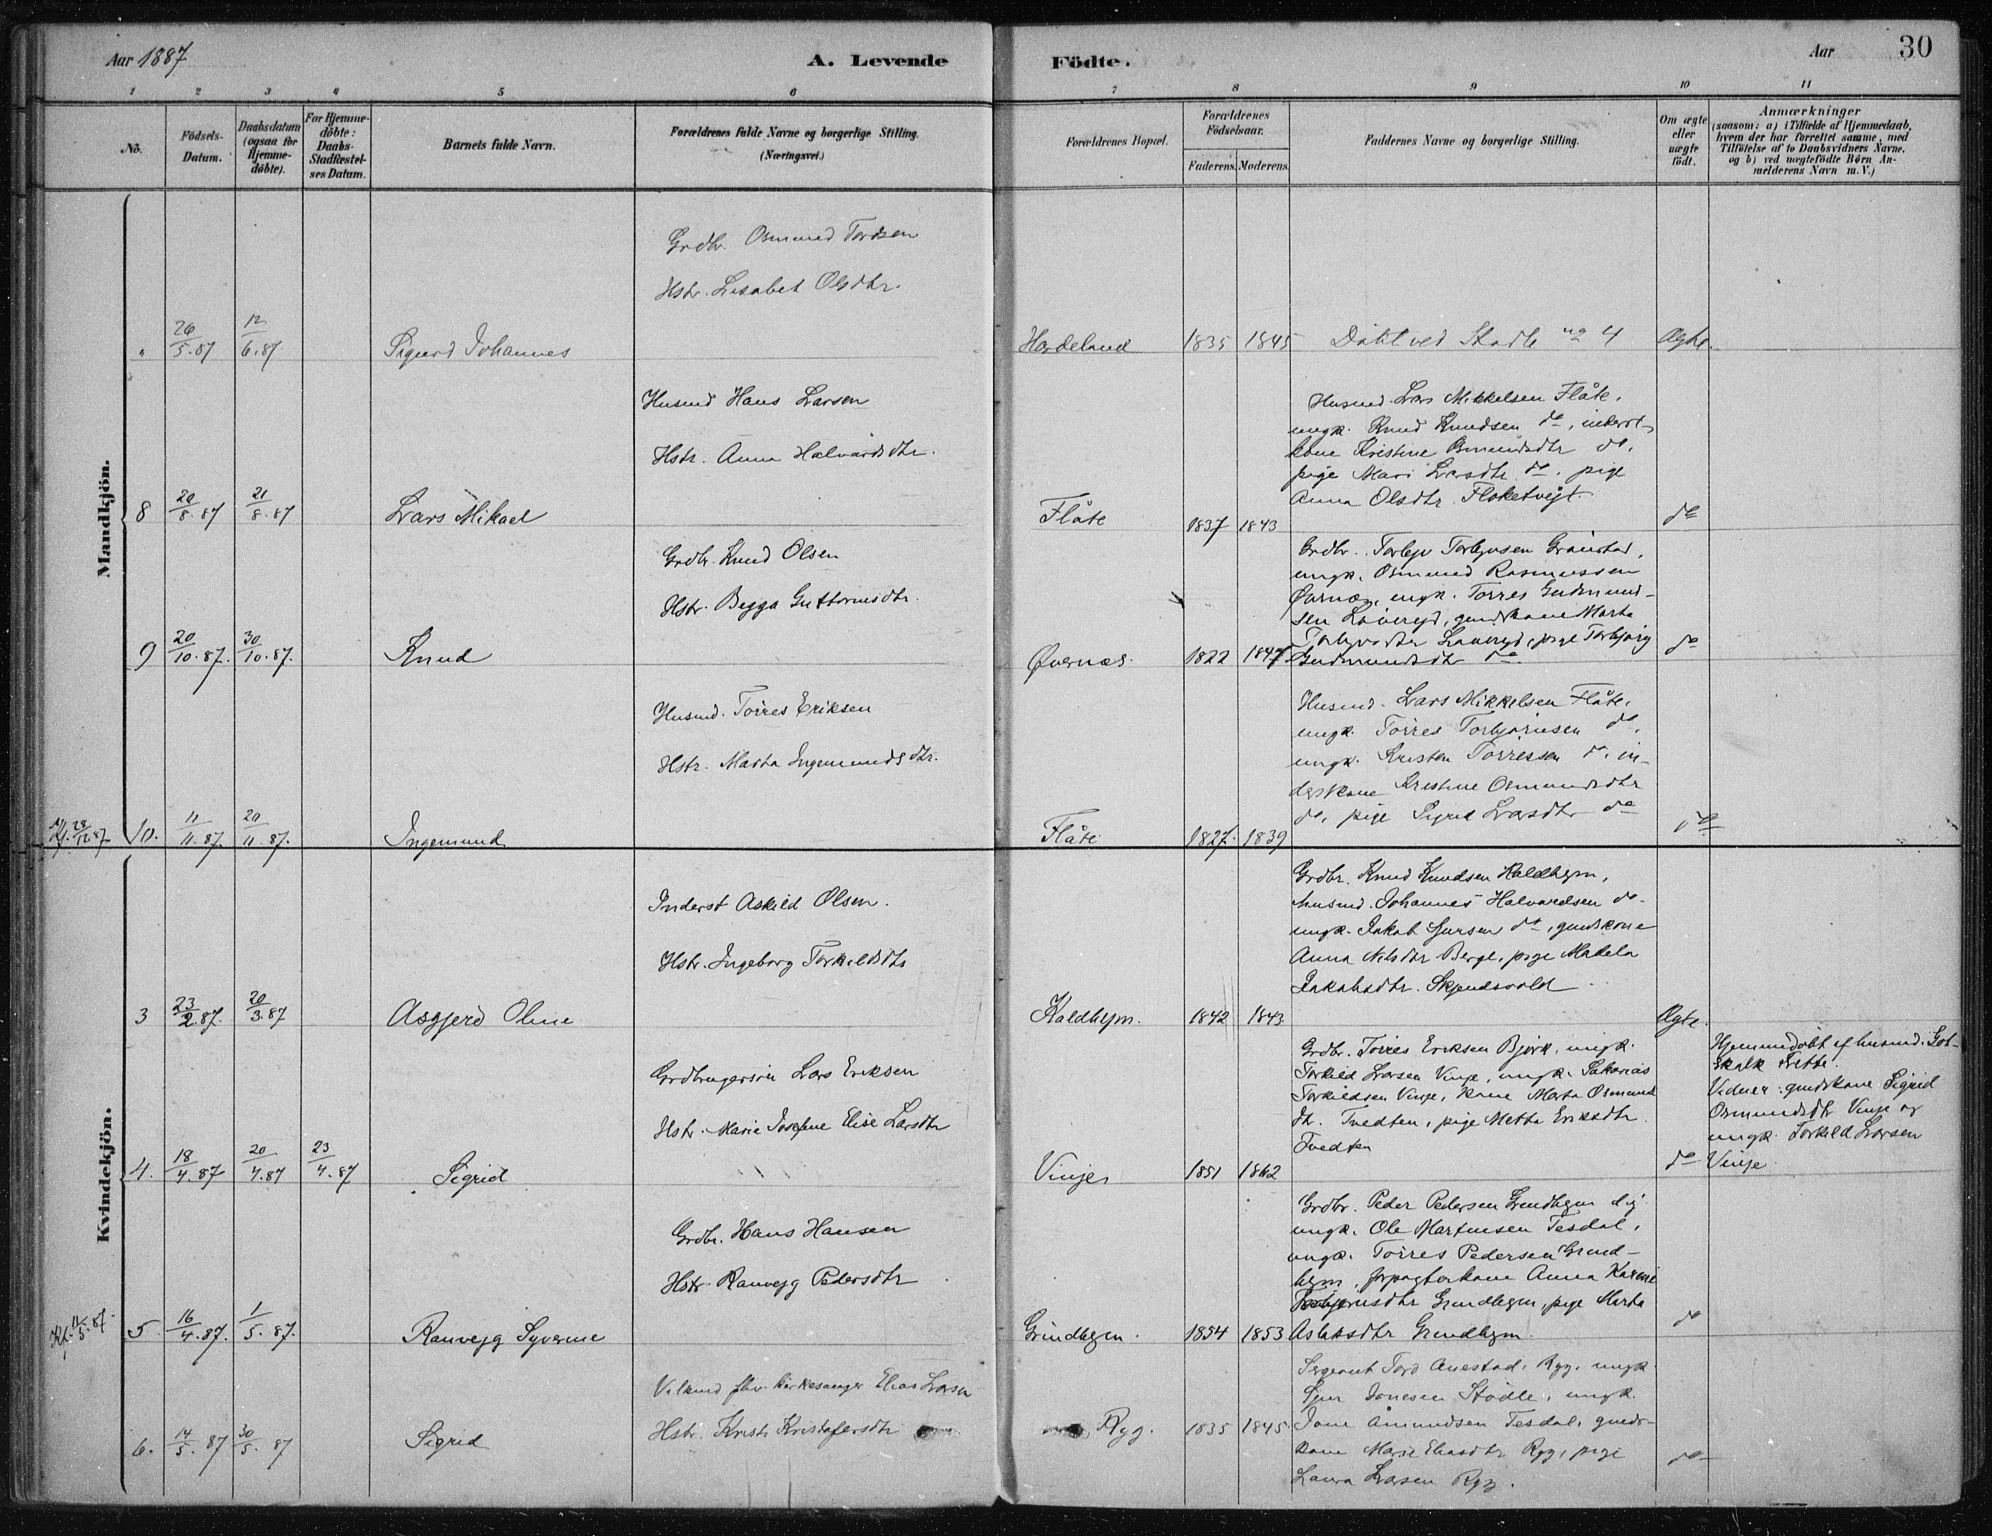 Aar 1887
A. Levende
Födte.
Aar
30
1 2 3 4 5 6 7 8 9 10 11
Nô.
Födsels-
Datum.
Daabsdatum
(ogsaa for
Hjemme-
döbte).
For Hjemme-
döbte:
Daabs-
Stadfæstel-
ses Datum.
Barnets fulde Navn.
Forældrenes fulde Navne og borgerlige Stilling.
(Næringsvei.)
Forældrenes Bopæl.
Forældrenes
Födselsaar.
Faderens.
Moderens.
Faddernes Navne og borgerlige Stilling.
Om ægte
eller
uægte
födt.
Anmærkninger
(saasom: a) i Tilfælde af Hjemmedaab,
hvem der har forrettet samme, med
Tilföielse af to Daabsvidners Navne.
og b) ved uægtefödte Börn An-
melderens Navn m.V.)
Mandkjön.
Grdbr. Osmund Tordsen
Hstr. Lisabet Olsdtr.
" 26/5.87 12/6.87 Sigurd Johannes
Hardeland 1835 1845 Døbt ved Stødle no 4 Ægte.
Husmd Hans Larsen
Hstr. Anna Halvardsdtr.
8 20/8.87 21/8.87 Lars Mikael
Flåte 1837 1843 do
Husmd. Lars Mikkelsen Flåte,
ungk. Knud Knudsen do, inderst-
kone Kristine Osmundsdtr do,
pige Mari Larsdtr do, pige
Anna Olsdtr Floketvejt
Grdbr. Knud Olsen
Hstr. Begga Guttormsdtr.
9 20/10.87. 30/10.87. Knud
Øvernæs. 1822 1847 do
Grdbr. Torbjn Torbjnsen Grønstad,
ungk. Osmund Rasmussen
Øvrnæs, ungk. Torres Gudmund-
sen Løvereid, gmdskone Marta
pige Torbjørg
Gudmundsdtr do.
Husmd. Torres Eriksen
Hstr. Marta Ingemundsdtr.
28/12.87 10. 11/11.87. 20/11.87. Ingemund
Flåte 1827. 1839 do
Husmd. Lars Mikkelsen Flåte,
ungk. Torres Torbjørnsen do,
ungk. Kristen Torressen do, in-
derskone Kristine Osmundsdtr
do, pige Sigrid Larsdtr do
Kvindekjön.
Inderst Askild Olsen.
Hstr. Ingeborg Torkildsdtr
3 23/2.87. 20/3.87 Asgjerd Oline
Kaldhejm. 1842 1843. Ægte.
Grdbr. Knud Knudsen Kaldhejm,
husmd. Johannes Halvardsen do.
ungk. Jakob Sjursen do, gmdskone
Anna Nilsdtr Berge, pige Makela
Jakobsdtr. Skjendsvold
Grdbrugersøn Lars Eriksen
Hstr. Marie Josefine Elise Larsdtr
4. 18/4.87 20/4.87 23/4.87 Sigrid
Vinje 1851 1862 do
Grdbr. Torres Eriksen Bjørk, ungk.
Torkild Larsen Vinje, ungk. Sakarias
Torkildsen Vinje, kone Marta Osmund
dtr. Tvedten, pige Metta Eriksdtr
Tvedten
Hjemmedøbt af husmd. Got-
skalk Frette.
Vidner: gmdskone Sigrid
Osmundsdtr Vinje og
ungk. Torkild Larsen
Vinje.
Grdbr. Hans Hansen
Hstr. Ranvejg Pedersdtr
5. 16/4.87. 1/5.87. Ranvejg Syverine
Grindhejm. 1854 1853 do
Grdbr. Peder Pedersen Grindhejm
ungk. Ole Martinsen Tesdal,
ungk. Torres Pedersen Grind-
hejm, forpagterkone Anna Karine
Torbjørnsdtr Grindhejm, pige Marta
Aslaksdtr Grindhejm.
kirkesanger Elias Larsen
Hstr. Kristi Kristofersdtr
6. 14/5.87 30/5.87 Sigrid
Ryg. 1835 1845. do
Sergeant Tord Anestad, Ryg, ungk.
Sjur Jonesen Stødle, ungk.
Jone Åmundsen Tesdal, gmds-
kone Marie Eliasdtr Ryg, pige
Laura Larsen Ryg.